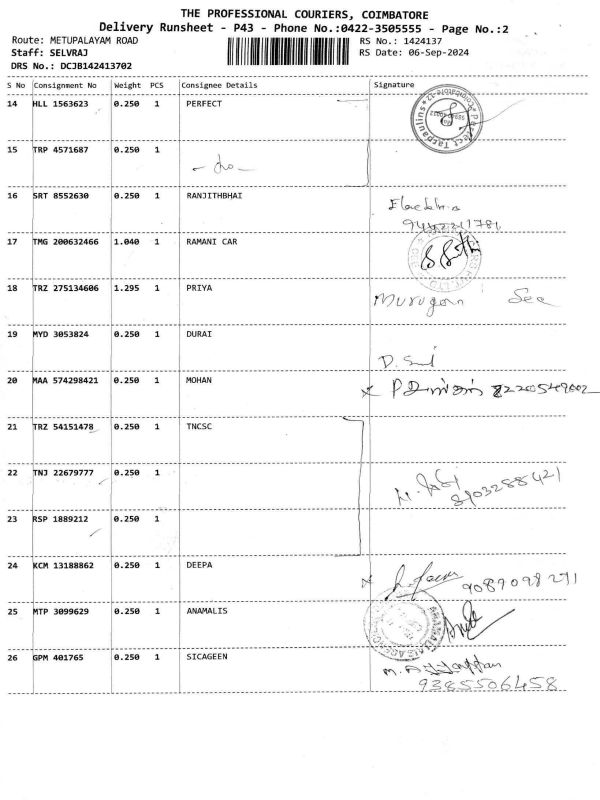 THE PROFESSIONAL COURIERS, COIMBATORE
Delivery Runsheet - P43 - Phone No.:0422-3505555 - Page No.:2
Route: METUPALAYAM ROAD RS No.: 1424137
Staff: SELVRAJ RS Date: 06-Sep-2024
DRS No.: DCJB142413702
S No Consignment No Weight PCS Consignee Details Signature
14 HLL 1563623 0.250 1 PERFECT
Perfect Tarpaulins
Coimbatore-12
15 TRP 4571687 0.250 1
16 SRT 8552630 0.250 1 RANJITHBHAI
17 TMG 200632466 1.040 1 RAMANI CAR
18 TRZ 275134606 1.295 1 PRIYA
Murugan
19 MYD 3053824 0.250 1 DURAI
20 MAA 574298421 0.250 1 MOHAN
21 TRZ 54151478 0.250 1 TNCSC
22 TNJ 22679777 0.250 1
8903288421
23 RSP 1889212 0.250 1
24 KCM 13188862 0.250 1 DEEPA
9087098271
25 MTP 3099629 0.250 1 ANAMALIS
26 GPM 401765 0.250 1 SICAGEEN
9385506458